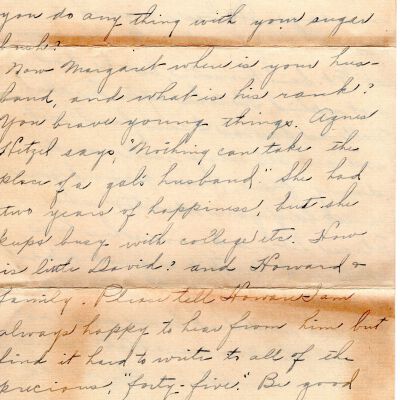 you do any thing with your sugar
bush?
Now Margaret where is your hus-
band, and what is his rank?
You brave young things. Agnes
Hetzel says, "Nothing can take the
place of a gal's husband." She had
two years of happiness, but she
keeps busy with college etc. How
is little David? and Howard &
family. Please tell Howard I am
always happy to hear from him but
find it hard to write to all of the
precious, "forty-five." Be good